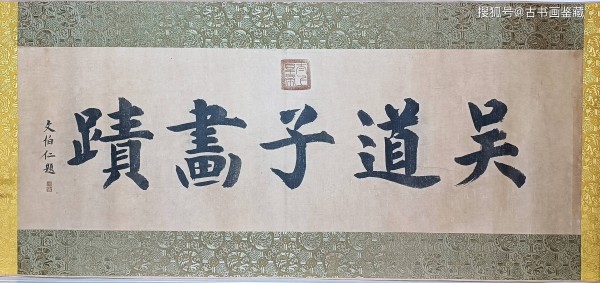 搜狐号@古书画鉴藏
吴道子畫蹟
文伯仁題